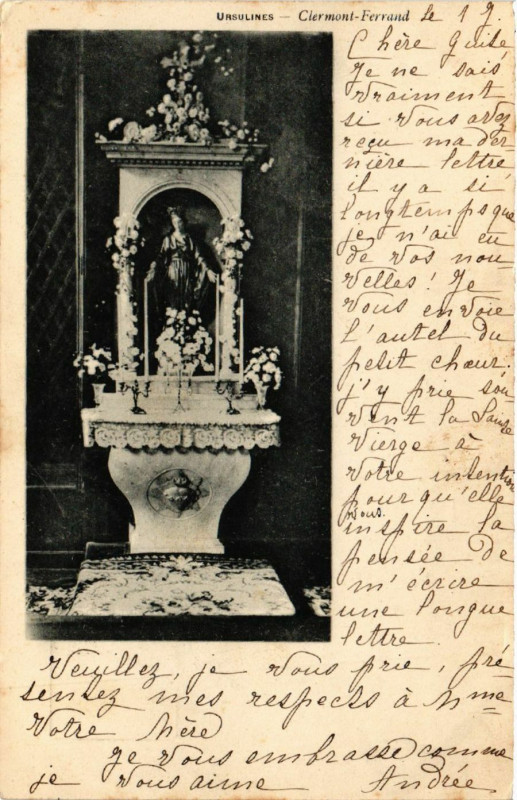 URSULINES — Clermont-Ferrand Le 1 7.
Chère Guite
Je ne sais
vraiment
si vous avez
reçu ma der
nière lettre
il y a si
longtemps que
je n'ai eu
de vos nou
velles! Je
vous envoie
l'autel du
petit chœur.
j'y prie sou
vent la Sainte
Vierge à
votre intention
pour qu'elle
vous
inspire la
pensée de
m'écrire
une longue
lettre.
Veuillez, je vous prie, pré
sentez mes respects à Mme
Votre Mère
Je vous embrasse comme
je vous aime Andrée